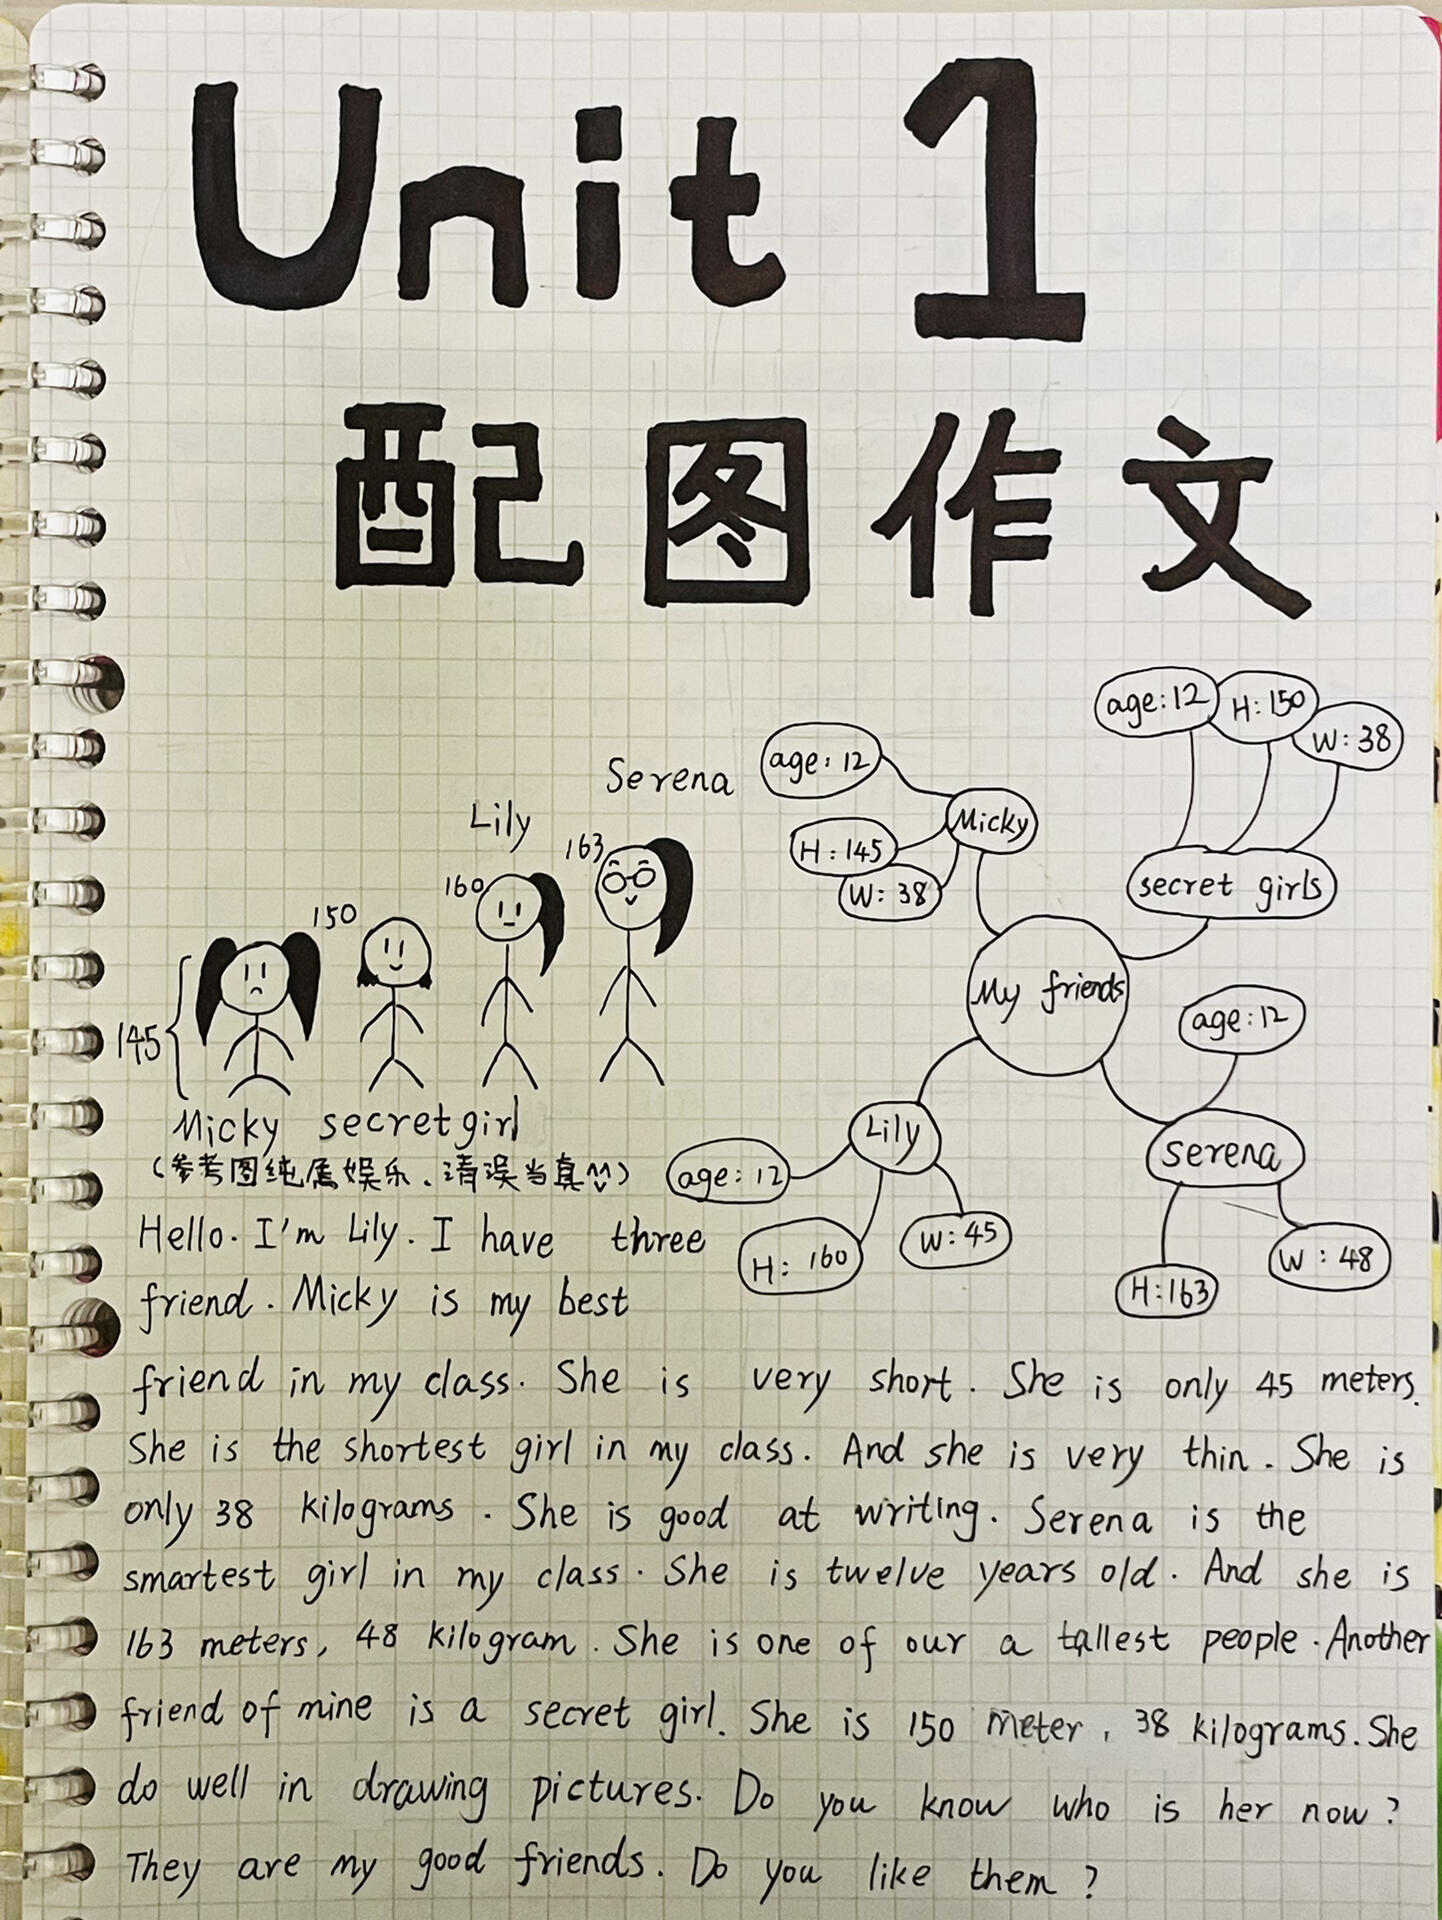 Unit 1
配图作文
Serena
Lily
163
160
150
145
Micky secret girl
(参考图纯属娱乐、请误当真)
age: 12
H: 145
W: 38
Micky
age: 12
H: 150
W: 38
secret girls
My friends
age: 12
serena
H: 163
W: 48
Lily
age: 12
H: 160
W: 45
Hello. I'm Lily. I have three
friend. Micky is my best
friend in my class. She is very short. She is only 45 meters.
She is the shortest girl in my class. And she is very thin. She is
only 38 kilograms. She is good at writing. Serena is the
smartest girl in my class. She is twelve years old. And she is
163 meters, 48 kilogram. She is one of our a tallest people. Another
friend of mine is a secret girl. She is 150 meter, 38 kilograms. She
do well in drawing pictures. Do you know who is her now?
They are my good friends. Do you like them?